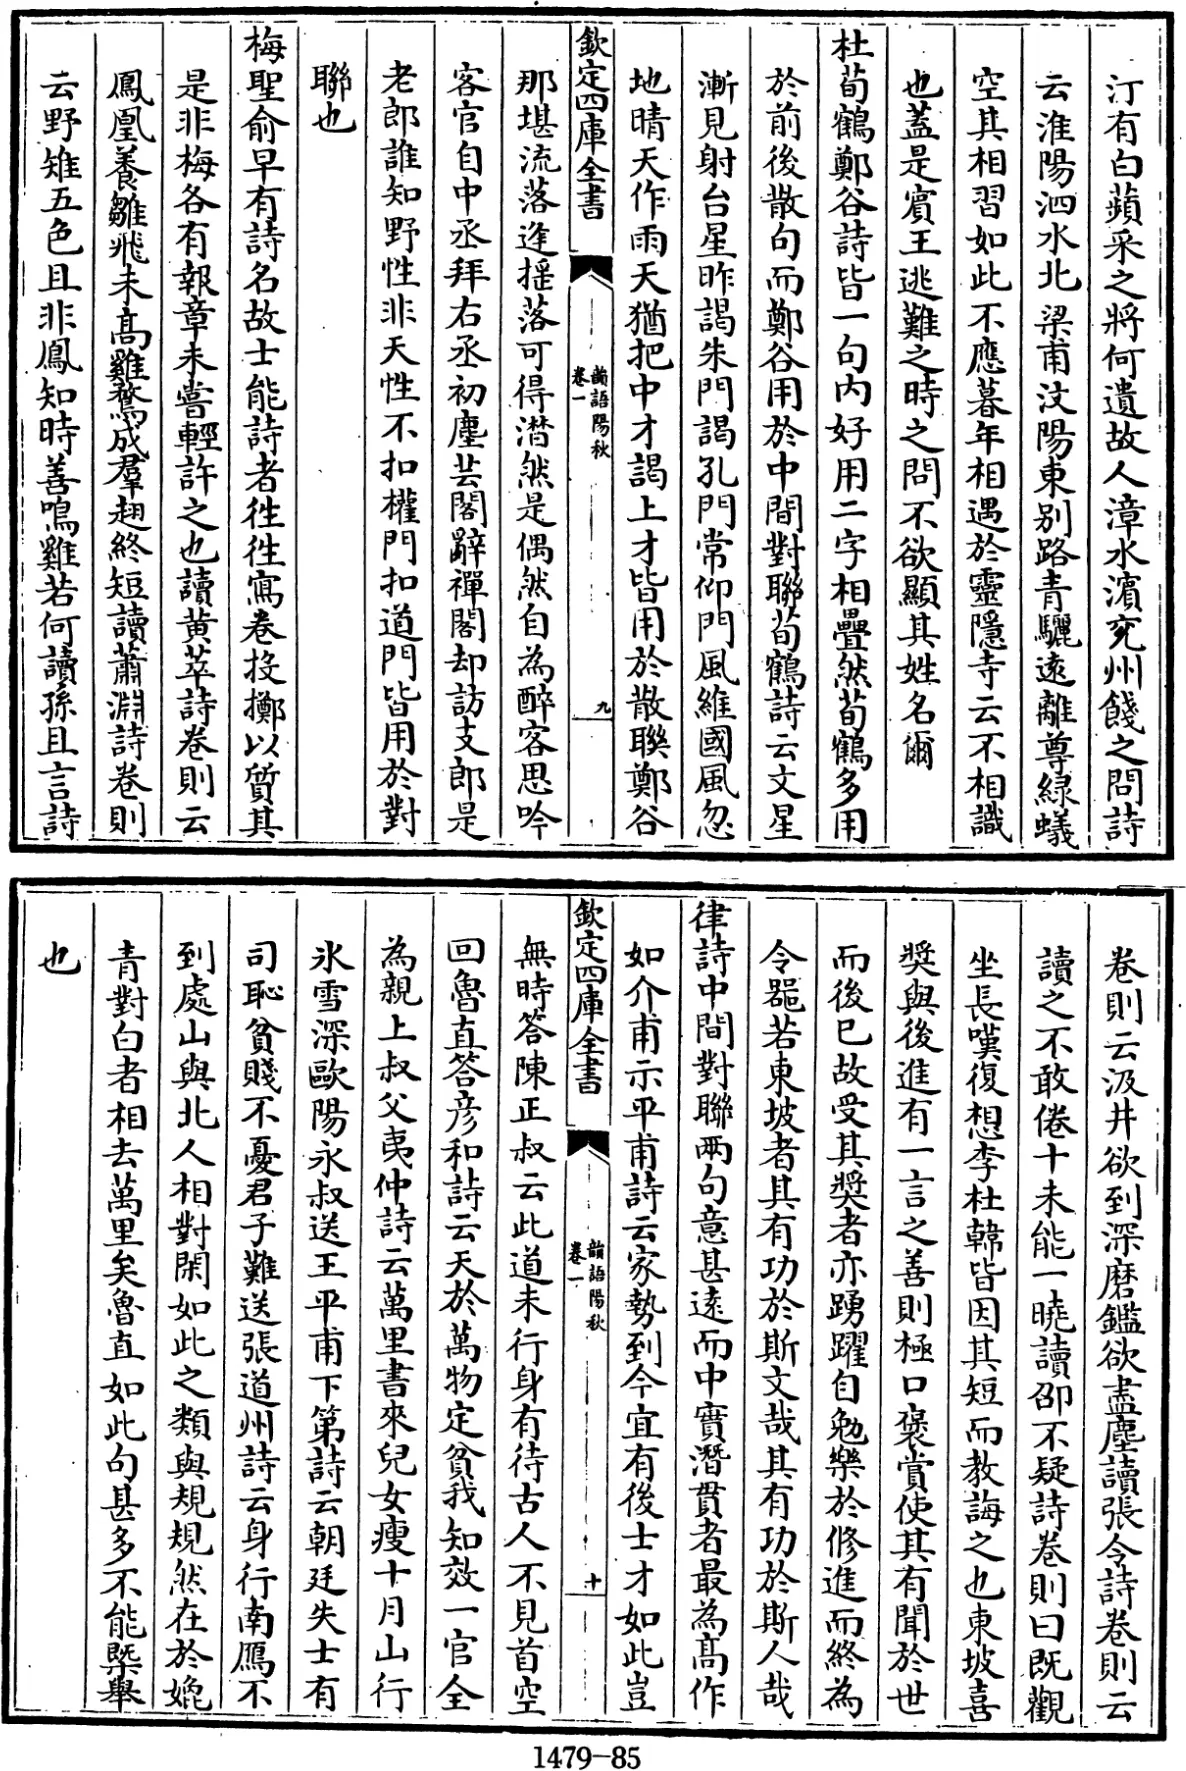 汀有白蘋采之將何遺故人漳水濱兖州餞之問詩
云淮陽泗水北梁甫汶陽東别路青驪逺離尊緑蟻
空其相習如此不應暮年相遇於靈隱寺云不相識
也蓋是賔王逃難之時之問不欲顯其姓名爾
杜荀鶴鄭谷詩皆一句内好用二字相疊然荀鶴多用
於前後散句而鄭谷用於中間對聯荀鶴詩云文星
漸見射台星昨謁朱門謁孔門常仰門風維國風忽
地晴天作雨天猶把中才謁上才皆用於散聯鄭谷
欽定四庫全書
韻語陽秋
卷一
九
那堪流落逢揺落可得潸然是偶然自為醉客思吟
客官自中丞拜右丞初塵芸閣辭禪閣却訪支郎是
老郎誰知野性非天性不扣權門扣道門皆用於對
聯也
梅聖俞早有詩名故士能詩者徃徃寫卷投擲以質其
是非梅各有報章未嘗輕許之也讀黄萃詩卷則云
鳳凰養雛飛未高雞鶩成羣翅終短讀蕭淵詩卷則
云野雉五色且非鳳知時善鳴雞若何讀孫且言詩
卷則云汲井欲到深磨鑑欲盡塵讀張令詩卷則云
讀之不敢倦十未能一曉讀邵不疑詩卷則曰既觀
坐長嘆復想李杜韓皆因其短而教誨之也東坡喜
奬與後進有一言之善則極口褒賞使其有聞於世
而後已故受其奬者亦踴躍自勉樂於修進而終為
令噐若東坡者其有功於斯文哉其有功於斯人哉
律詩中間對聯兩句意甚逺而中實潛貫者最為髙作
如介甫示平甫詩云家勢到今宜有後士才如此豈
欽定四庫全書
韻語陽秋
卷一
十
無時答陳正叔云此道未行身有待古人不見首空
回魯直答彦和詩云天於萬物定貧我知效一官全
為親上叔父夷仲詩云萬里書來兒女瘦十月山行
氷雪深歐陽永叔送王平甫下第詩云朝廷失士有
司恥貧賤不憂君子難送張道州詩云身行南鴈不
到處山與北人相對閑如此之類與規規然在於媲
青對白者相去萬里矣魯直如此句甚多不能槩舉
也
1479-85